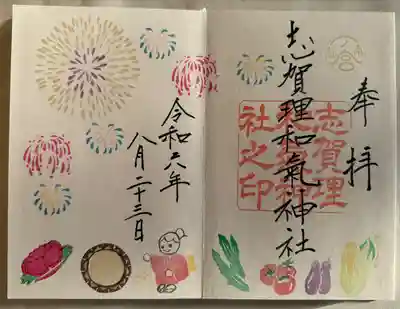 奉拝
志賀理和氣神社
志賀理
社之印
令和六年
八月二十三日